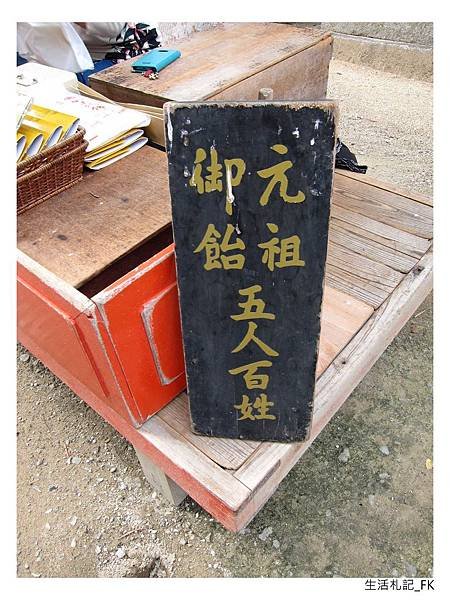 元祖
御飴
五人百姓
生活札記_FK